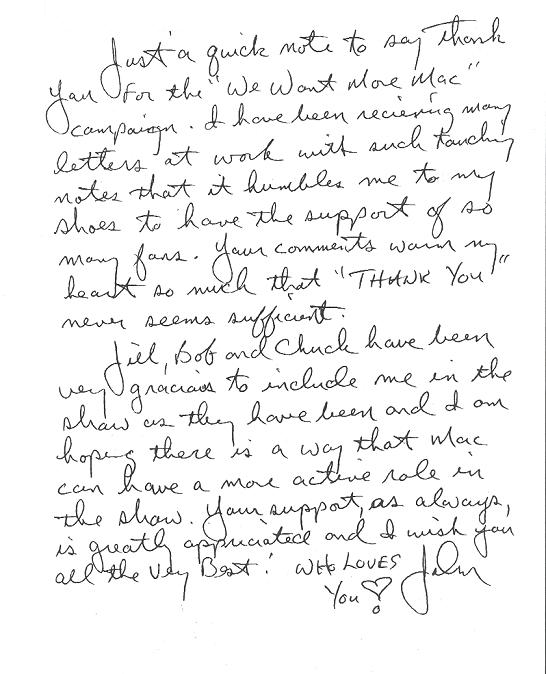 Just a quick note to say thank
you for the "We Want More Mac"
campaign. I have been recieving many
letters at work with such touching
notes that it humbles me to my
shoes to have the support of so
many fans. Your comments warm my
heart so much that "THANK YOU"
never seems sufficient.
Jill, Bob and Chuck have been
very gracious to include me in the
show as they have been and I am
hoping there is a way that Mac
can have a more active role in
the show. Your support, as always,
is greatly appriciated and I wish you
all the Very Best! WHO LOVES
You John